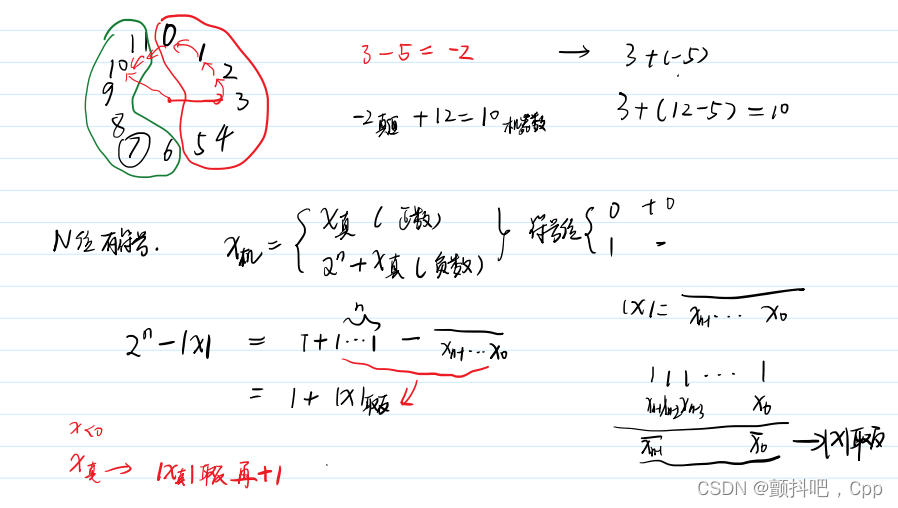 11 0 1
10 2
9 3
8 4
7 6 5
3 - 5 = -2 → 3 + (-5)
-2真值 + 12 = 10机器数 3 + (12-5) = 10
N位有符号. x机 = { x真 (正数) } 符号位 { 0 +0
2ⁿ + x真 (负数) 1 -
|x| = xn-1 ... x0
n
2ⁿ - |x| = 1 + 1...1 - xn-1...x0
= 1 + |x|取反
1 1 1 ... 1
xn-1 xn-2 xn-3 x0
x̄n-1 x̄0 → |x|取反
x<0
x真 → |x真|取反再+1
CSDN @颤抖吧，Cpp